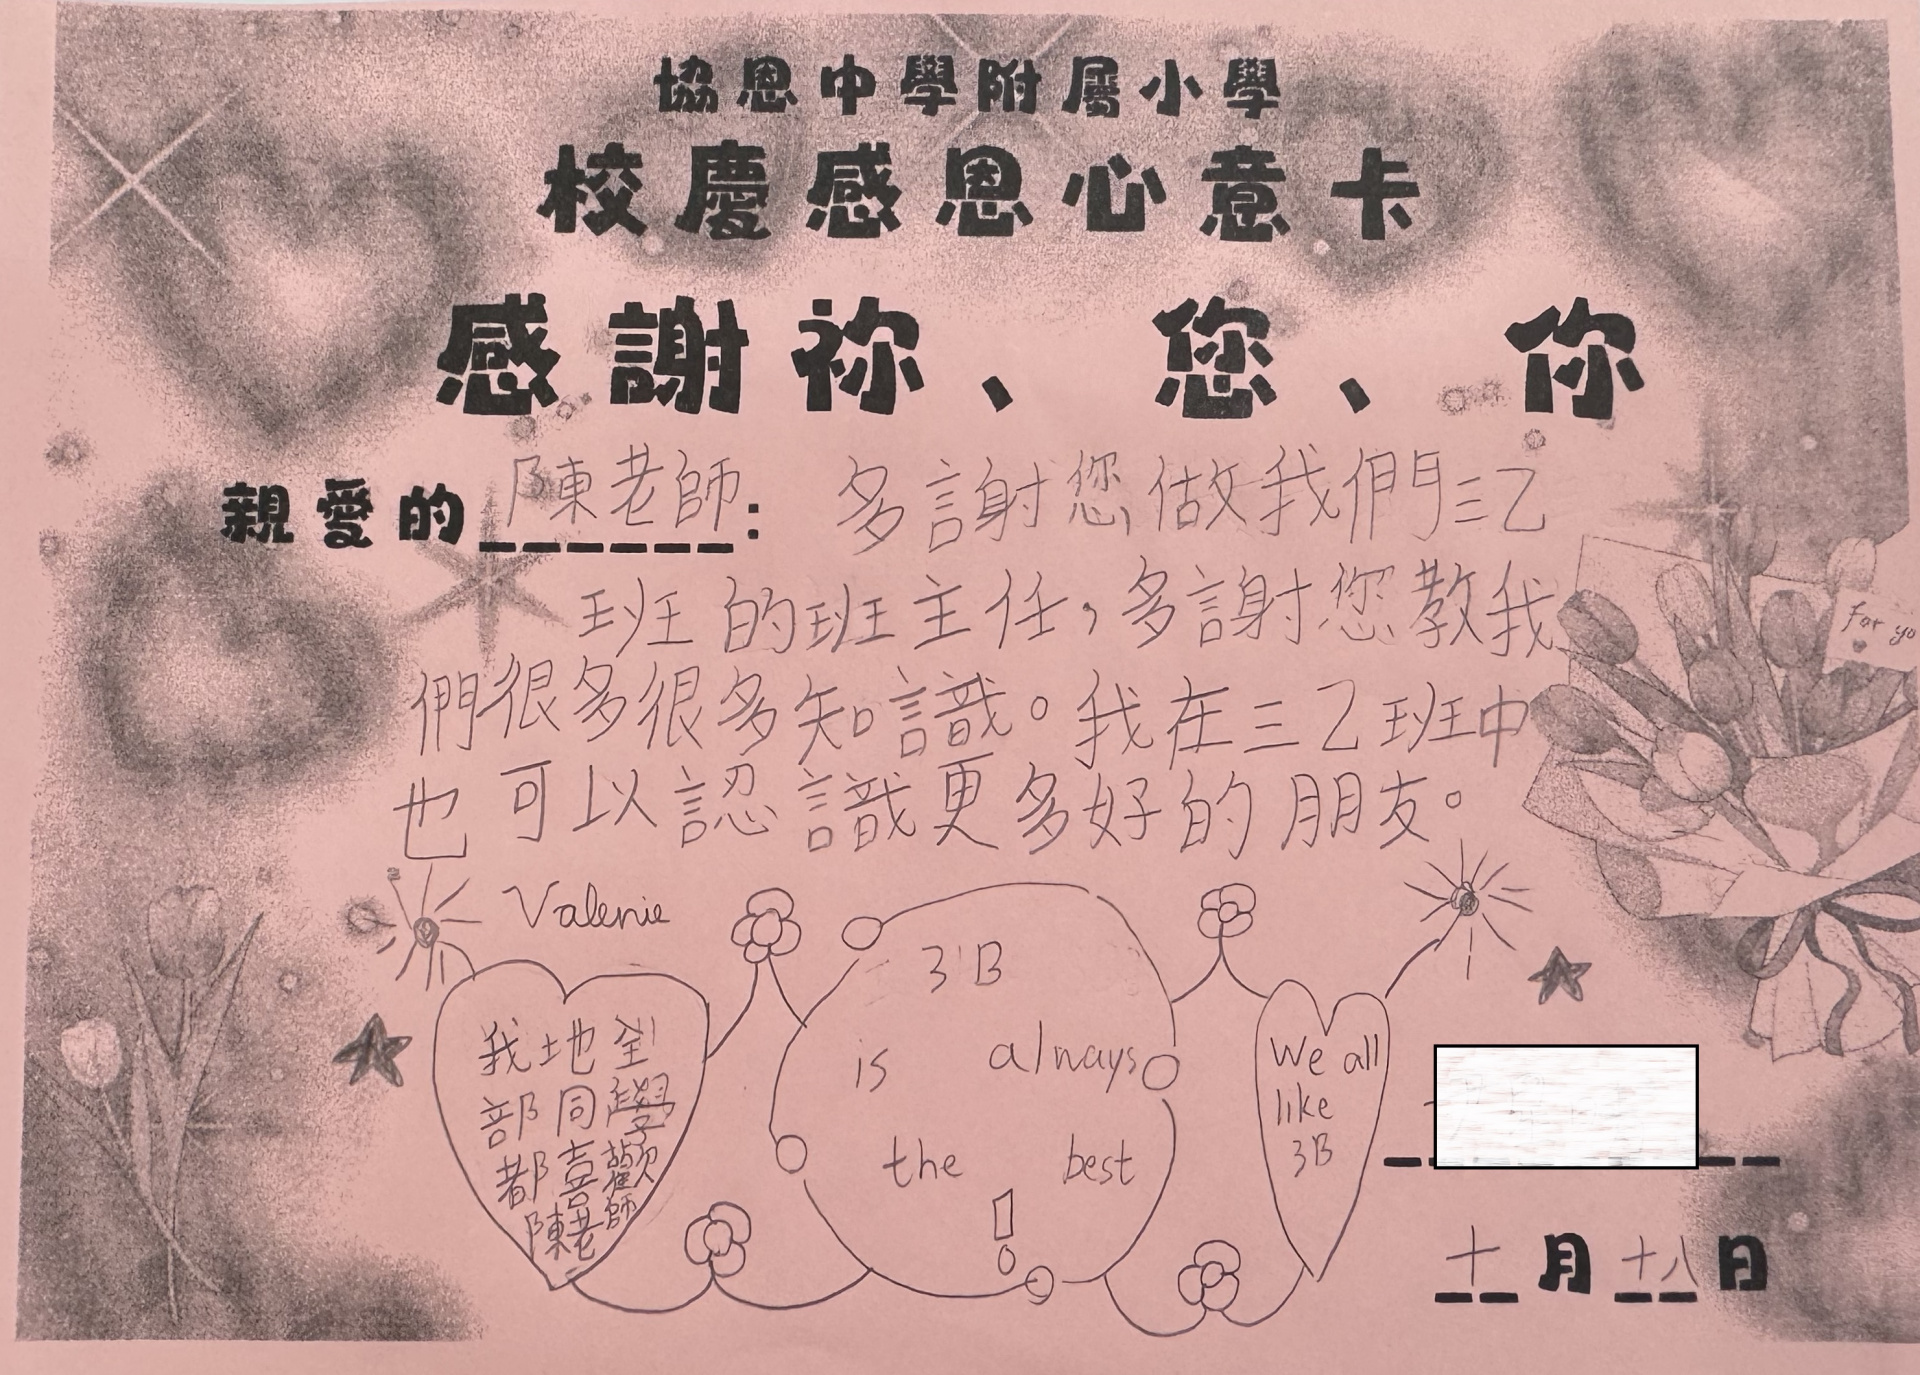 協恩中學附屬小學
校慶感恩心意卡
感謝祢、您、你
親愛的陳老師：多謝您做我們三乙
班的班主任，多謝您教我
們很多很多知識。我在三乙班中
也可以認識更多好的朋友。
For yo
Valerie
我地全
部同學
都喜歡
陳老師
3B
is always
the best
!
We all
like
3B
十月十八日